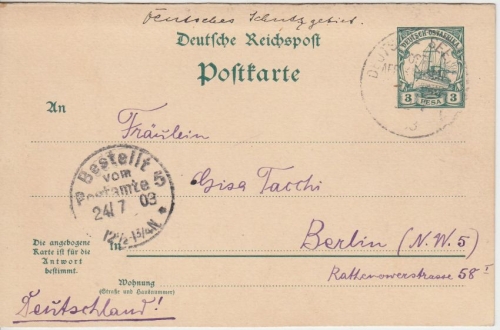 Deutsches Schutzgebiet.
Deutsche Reichspost
Postkarte
DEUTSCH-OSTAFRIKA
3 PESA 3
An
Fräulein
Gisa Tacchi
Bestellt
vom
Postamte
24/7 03
12½-1¾N
in Berlin (N.W. 5)
Rathenowerstrasse 58 I
Die angebogene
Karte ist für die
Antwort
bestimmt.
Wohnung
(Straße und Hausnummer)
Deutschland!